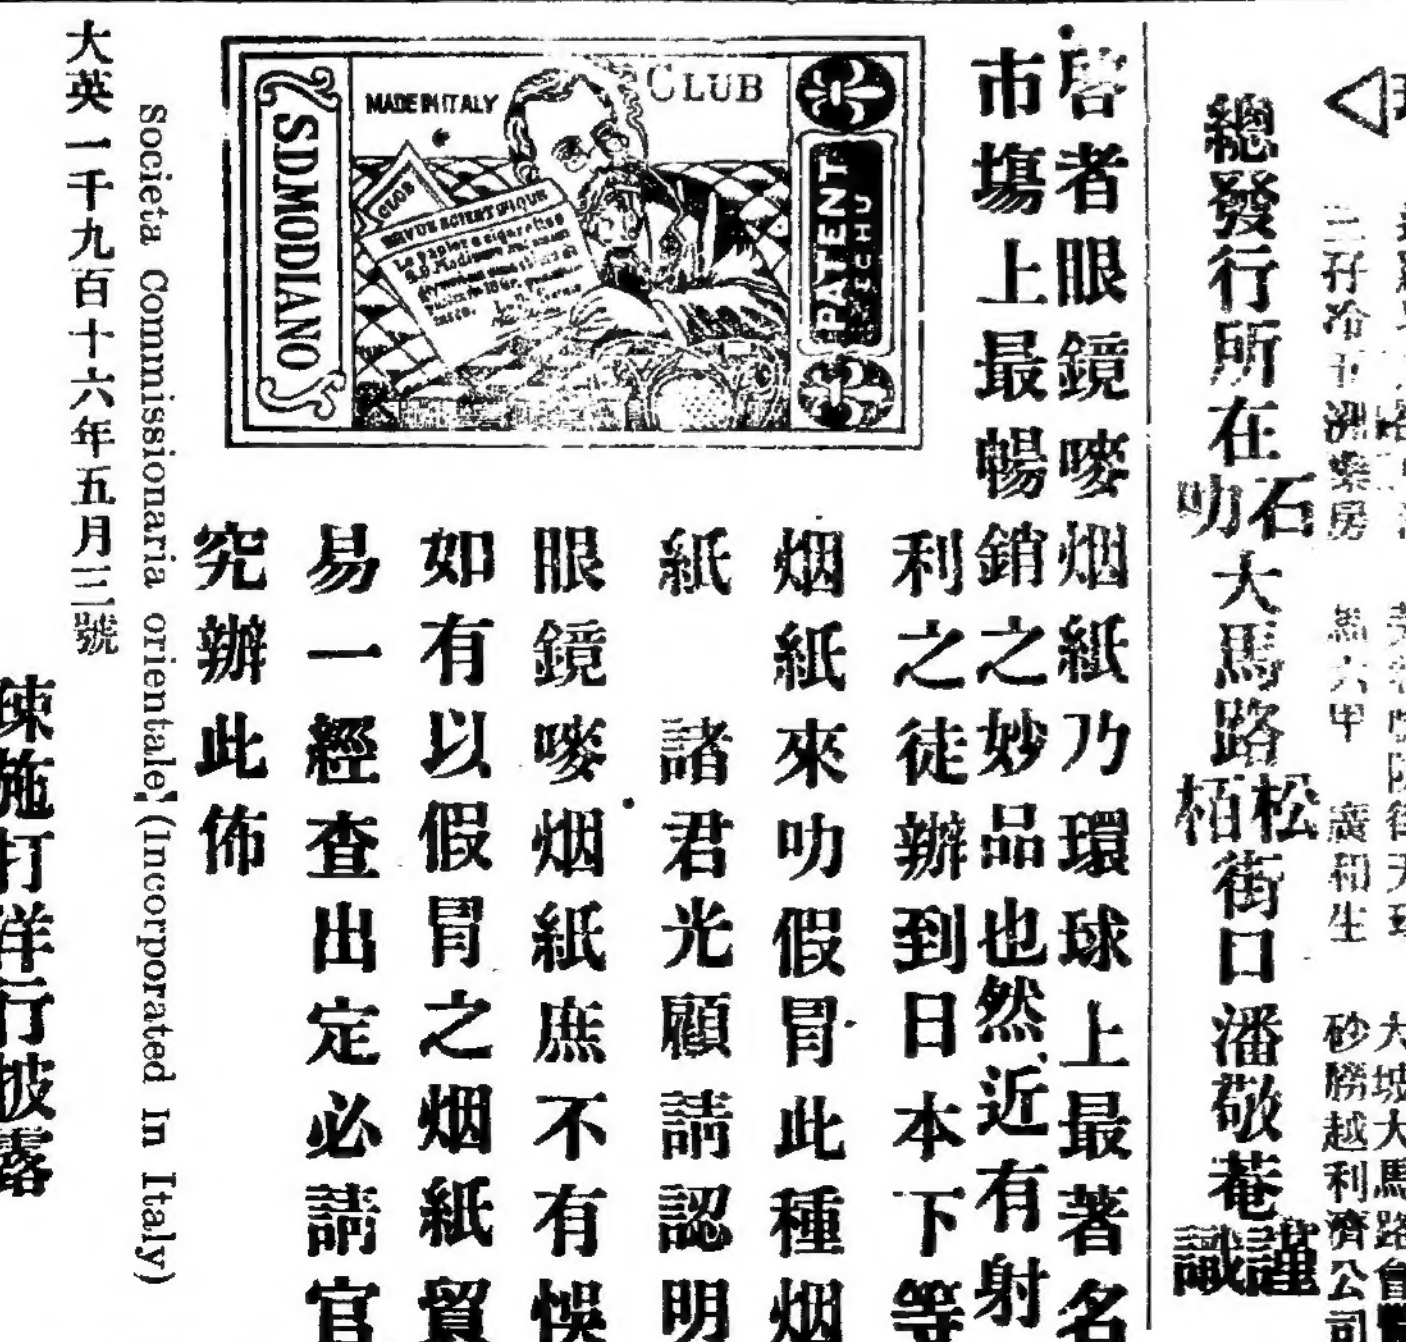 三孖冷五洲藥房 馬六甲 廣和生 砂朥越利濟公司
總發行所在石叻大馬路松栢街口潘敬菴謹識
啓者眼鏡嘜烟紙乃環球上最著名
市塲上最暢銷之妙品也然近有射
利之徒辦到日本下等
烟紙來叻假冒此種烟
紙 諸君光顧請認明
眼鏡嘜烟紙庶不有悞
如有以假冒之烟紙貿
易一經查出定必請官
究辦此佈
CLUB
MADE IN ITALY
S.D.MODIANO
PATENT
CLUB
REVUE SCIENTIFIQUE
Societa Commissionaria orientale (Incorporated In Italy)
大英一千九百十六年五月三號
陳施打洋行披露